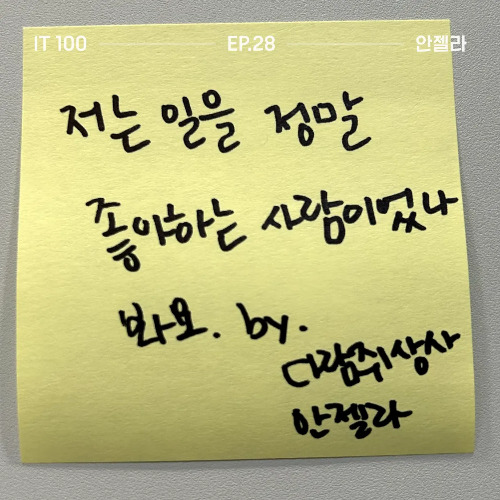 IT 100 EP.28 안젤라
저는 일을 정말
좋아하는 사람이었나
봐요. by.
다람쥐상사
안젤라